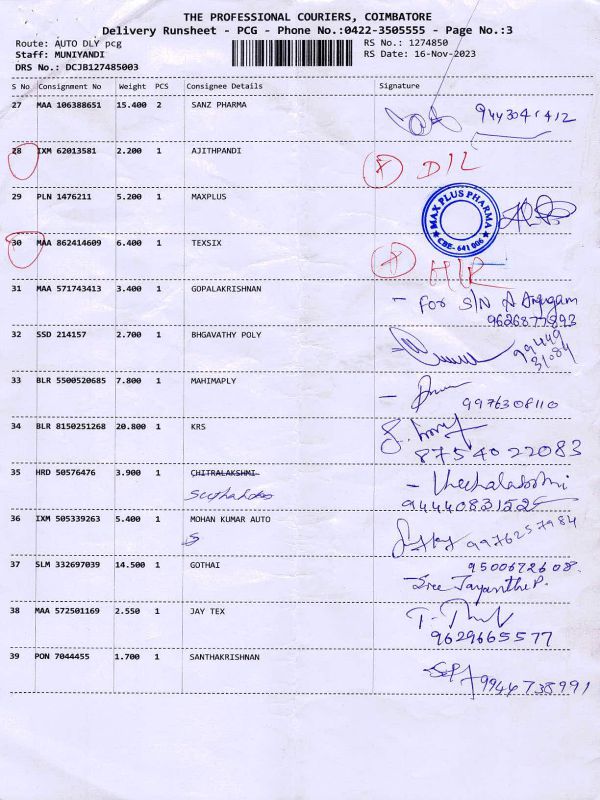 THE PROFESSIONAL COURIERS, COIMBATORE
Delivery Runsheet - PCG - Phone No.:0422-3505555 - Page No.:3
Route: AUTO DLY pcg RS No.: 1274850
Staff: MUNIYANDI RS Date: 16-Nov-2023
DRS No.: DCJB127485003
S No Consignment No Weight PCS Consignee Details Signature
27 MAA 106388651 15.400 2 SANZ PHARMA 9443041412
28 IXM 62013581 2.200 1 AJITHPANDI D/L
29 PLN 1476211 5.200 1 MAXPLUS
MAX PLUS PHARMA
CBE-641 006
30 MAA 862414609 6.400 1 TEXSIX
31 MAA 571743413 3.400 1 GOPALAKRISHNAN - For S/N A Arugam
9626877893
32 SSD 214157 2.700 1 BHGAVATHY POLY 99449
31084
33 BLR 5500520685 7.800 1 MAHIMAPLY
9976308110
34 BLR 8150251268 20.800 1 KRS
8754022083
35 HRD 50576476 3.900 1 CHITRALAKSHMI
9444083152
36 IXM 505339263 5.400 1 MOHAN KUMAR AUTO
S 9976257984
37 SLM 332697039 14.500 1 GOTHAI 9500672608
Sree Jayanthi P.
38 MAA 572501169 2.550 1 JAY TEX
9629665577
39 PON 7044455 1.700 1 SANTHAKRISHNAN
9944738991